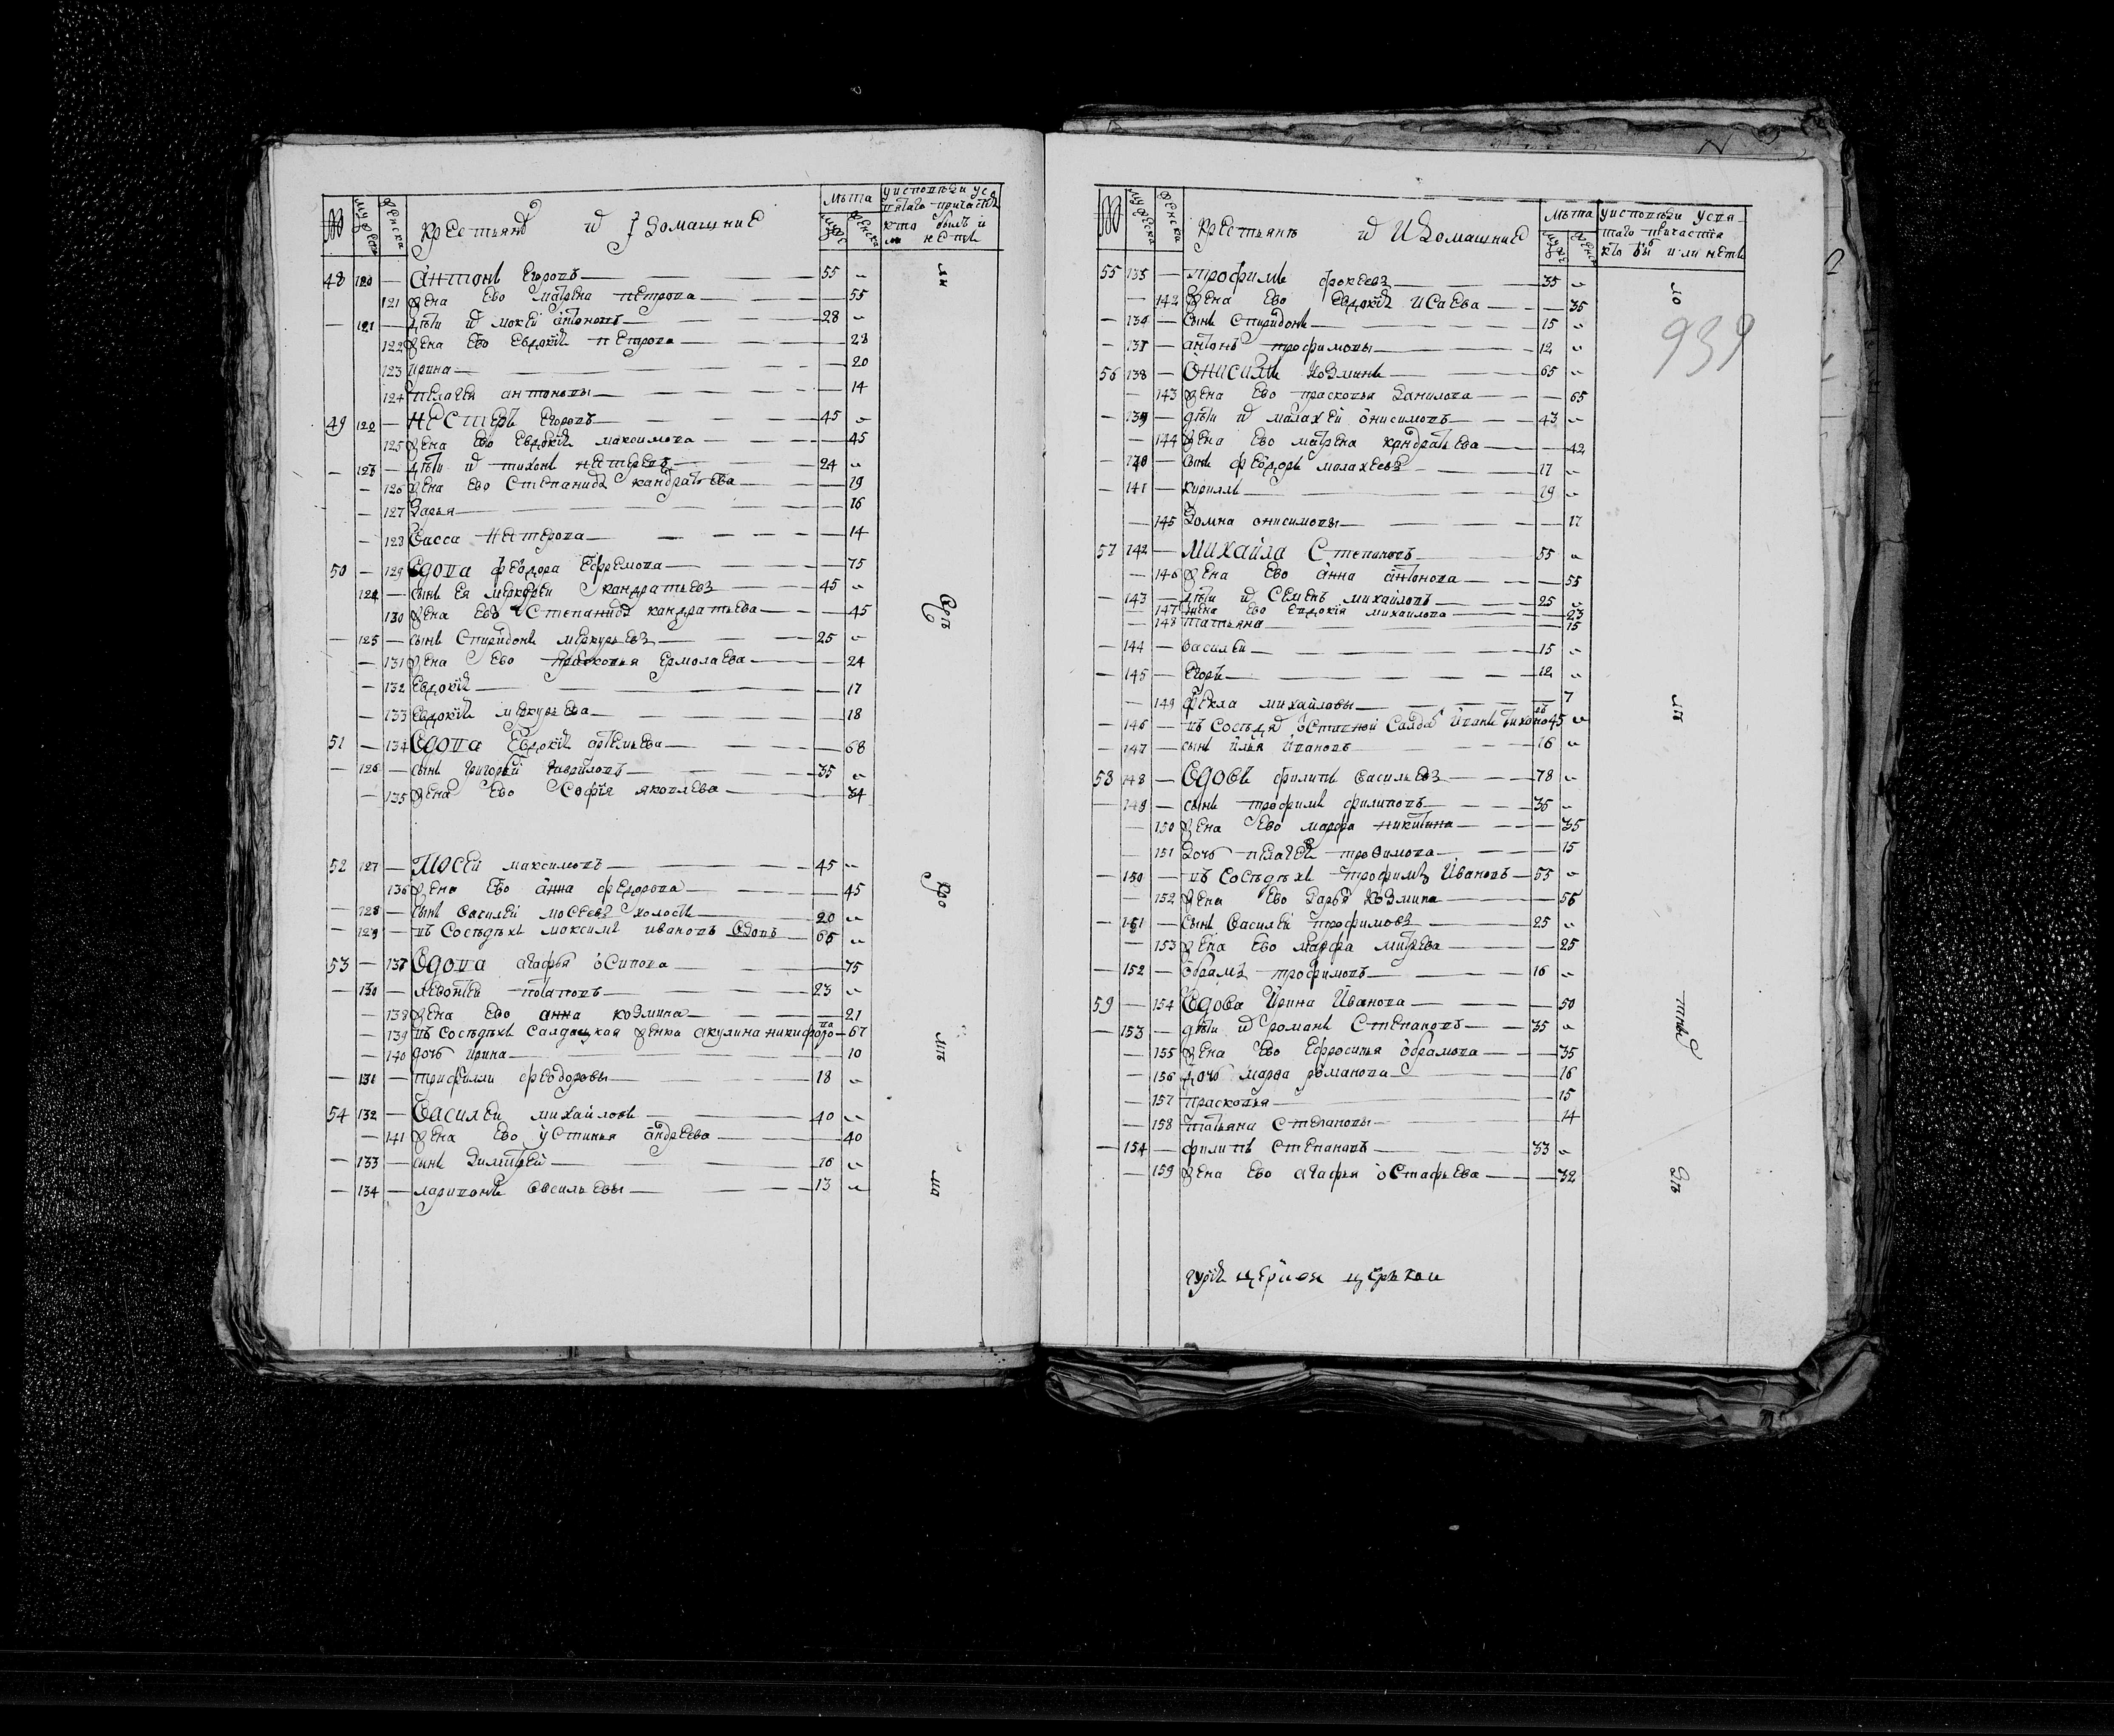 № мужеска женска крестьяня и домашние лѣта мужс женска у исповѣди и у св
ятаго причастія
кто былъ и
ли нѣтъ
48 120 — Антонъ Егоровъ — 55 „
121 жена ево матрена петрова — 55
— 121 — дѣти ихъ мокей антоновъ — 28 „
122 жена ево Евдокия петрова — 28
123 ирина — 20
124 пелагея антоновы — 14
49 122 — Нестеръ Егоровъ — 45 „
125 жена ево Евдокия максимова — 45
— 123 — дѣти ихъ тихонъ нестеревъ — 24 „
— 126 жена ево Степанида кандратьева — 19
— 127 Дарья — 16
— 128 Васса нестерова — 14
50 — 129 вдова феодора Ефремова — 75
124 — сынъ Ея меркурей кандратьевъ — 45 „
130 жена Евъ Степанида кандратьева — 45
— 125 — сынъ Спиридонъ меркурьевъ — 25 „
— 131 жена Ево прасковья Ермолаева — 24
— 132 Евдокия — 17
— 133 Евдокия меркурьева — 18
51 — 134 вдова Евдокия артемьева — 68
— 126 — сынъ григорей гавриловъ — 35 „
— 135 жена Ево Софія яковлева — 34
52 127 — Мосей максимовъ — 45 „
136 жена Ево анна федорова — 45
— 128 — сынъ Василей мосеевъ холостъ — 20 „
— 129 — въ Сосѣдѣхъ максимъ ивановъ вдовъ — 65 „
53 — 137 вдова агафья осипова — 75
— 130 — левонтей потаповъ — 23 „
— 138 жена Ево анна козмина — 21
— 139 въ Сосѣдѣхъ Салдацкая женка акулина никифорова — 67
— 140 дочь ирина — 10
— 131 — трифилли феодоровы — 18 „
54 132 — Василей михайловъ — 40 „
— 141 жена Ево устинья андреева — 40
— 133 — сынъ Димитрей — 16 „
— 134 — ларивонъ васильевы — 13 „
№ мужеска женска крестьянъ и ихъ домашние лѣта мужс женска у исповѣди и у свя
таго причастія
кто былъ или нѣтъ
55 135 — трофимъ фокеевъ — 35 „
— 142 жена Ево Евдокия исаева — 35
— 136 — сынъ Спиридонъ — 15 „
— 137 — антонъ трофимовы — 12 „
939
56 138 — Онисимъ козминъ — 65 „
— 143 жена Ево прасковья данилова — 65
— 139 — дѣти ихъ малахей онисимовъ — 43 „
— 144 жена Ево матрена кандратьева — 42
— 140 — сынъ феодоръ малахеевъ — 17 „
— 141 — кирилъ — 19 „
— 145 домна онисимовы — 17
57 142 — Михайла Степановъ — 55 „
— 146 жена Ево анна антонова — 55
— 143 — дѣти ихъ Семенъ михайловъ — 25 „
— 147 жена Ево Евдокія михаилова — 23
— 148 татьяна — 15
— 144 — василей — 15 „
— 145 — Егоръ — 12 „
— 149 фекла михайловы — 7
— 146 — въ Сосѣдяхъ отставной Салдатъ иванъ тихоновъ 45 „
— 147 — сынъ илья ивановъ — 16 „
58 148 — вдовъ филипъ Васильевъ — 78 „
— 149 — сынъ трофимъ филиповъ — 36 „
— 150 жена Ево марфа никитина — 35
— 151 дочь пелагея трофимова — 15
— 150 — въ Сосѣдѣхъ трофимъ Ивановъ — 55 „
— 152 жена Ево дарья козмина — 56
— 151 — сынъ Василей трофимовъ — 25 „
— 153 жена Ево марфа митрева — 25
— 152 — обрамъ трофимовъ — 16 „
59 — 154 вдова Ирина Иванова — 50
— 153 — дѣти ихъ романъ Степановъ — 35 „
— 155 жена Ево Ефросинья обрамова — 35
— 156 дочь марфа романова — 16
— 157 прасковья — 15
— 158 татьяна Степановы — 14
— 154 — филипъ степановъ — 33 „
— 159 жена Ево агафья остафьева — 32